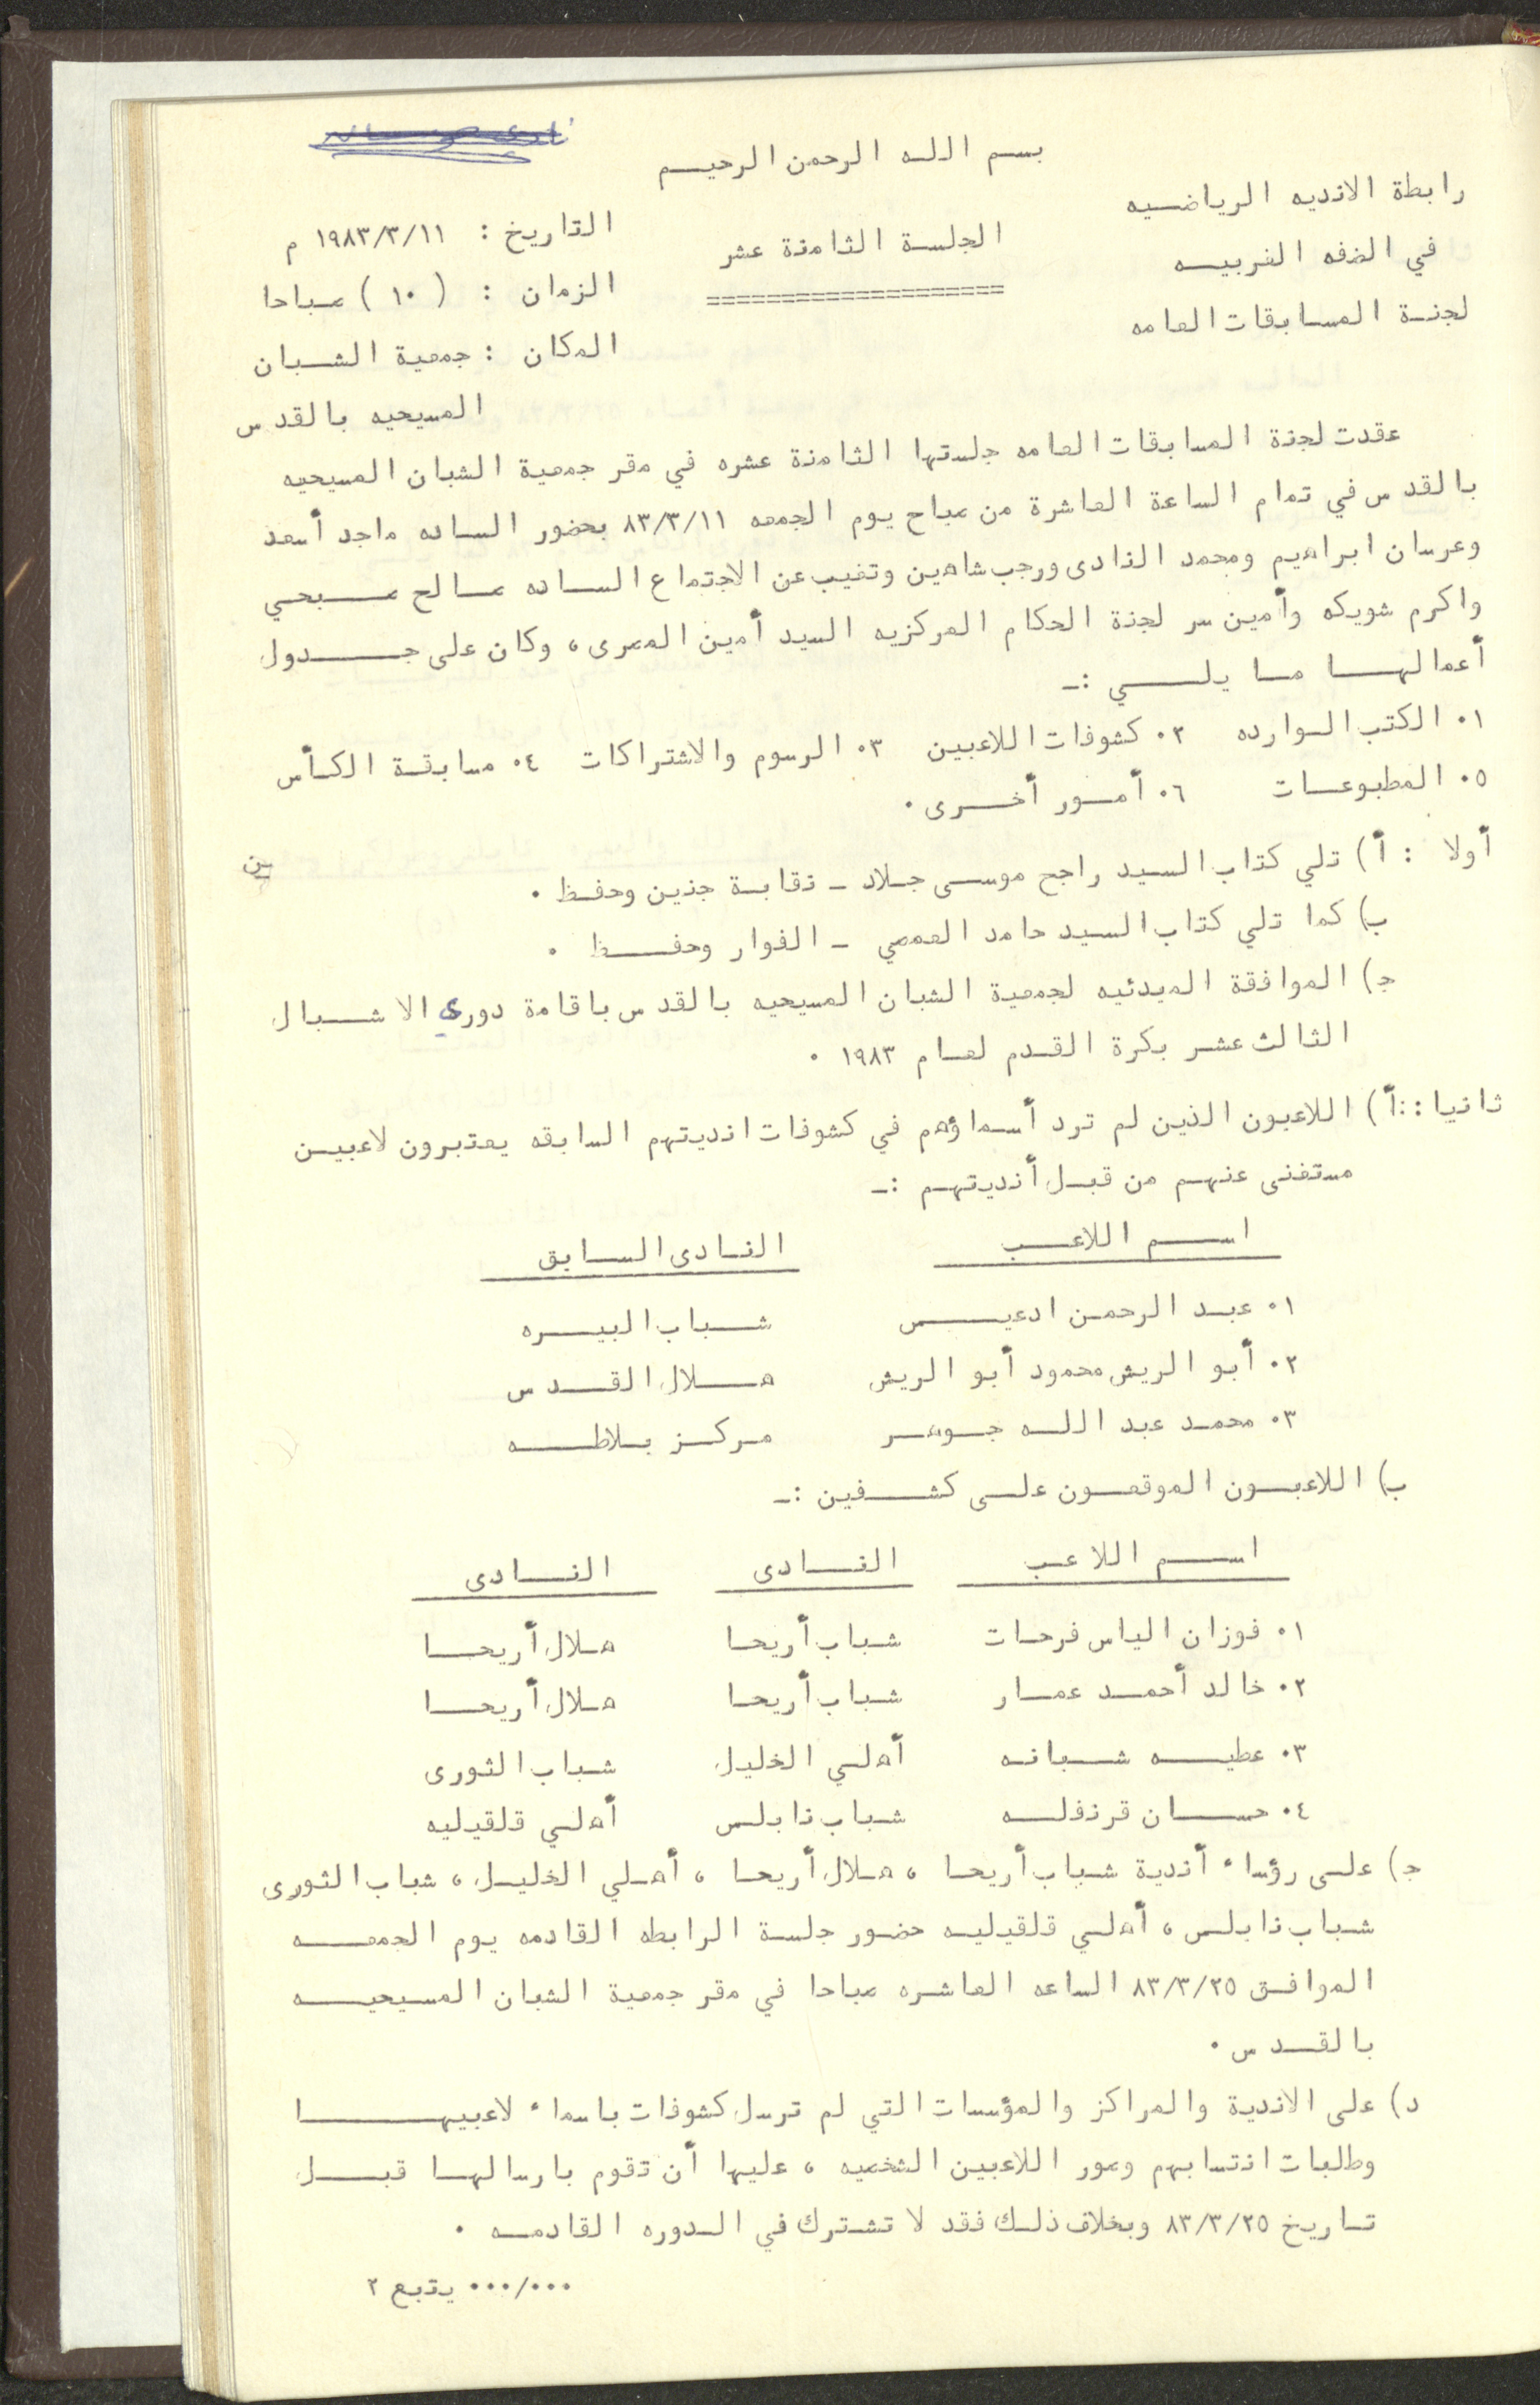 بسم الله الرحمن الرحيم
رابطة الانديه الرياضيه
في الضفه الغربيه
لجنة المسابقات العامه
الجلسة الثامنة عشر
====================
التاريخ : ١٩٨٣/٣/١١ م
الزمان : ( ١٠ ) صباحا
المكان : جمعية الشبان
المسيحيه بالقدس
عقدت لجنة المسابقات العامه جلستها الثامنة عشره في مقر جمعية الشبان المسيحيه
بالقدس في تمام الساعة العاشرة من صباح يوم الجمعه ٨٣/٣/١١ بحضور الساده ماجد أسعد
وعرسان ابراهيم ومحمد النادى ورجب شاهين وتغيب عن الاجتماع الساده صالح صبحي
واكرم شويكه وأمين سر لجنة الحكام المركزيه السيد أمين المصرى ، وكان على جدول
أعمالها ما يلي :ـ
٠١ الكتب الوارده ٠٢ كشوفات اللاعبين ٠٣ الرسوم والاشتراكات ٠٤ مسابقة الكأس
٠٥ المطبوعات ٠٦ أمور أخرى ٠
أولا : أ ) تلي كتاب السيد راجح موسى جلاد ـ نقابة جنين وحفظ ٠
ب) كما تلي كتاب السيد حامد العمصي ـ الفوار وحفظ ٠
ج) الموافقة المبدئيه لجمعية الشبان المسيحيه بالقدس باقامة دورى الاشبال
الثالث عشر بكرة القدم لعام ١٩٨٣ ٠
ثانيا : : أ ) اللاعبون الذين لم ترد أسماؤهم في كشوفات انديتهم السابقه يعتبرون لاعبين
مستغنى عنهم من قبل أنديتهم :ـ
اسم اللاعب النادى السابق
٠١ عبد الرحمن ادعيس شباب البيره
٠٢ أبو الريش محمود أبو الريش هلال القدس
٠٣ محمد عبد الله جوهر مركز بلاطه
ب) اللاعبون الموقعون على كشفين :ـ
اسم اللاعب النادى النادى
٠١ فوزان الياس فرحات شباب أريحا هلال أريحا
٠٢ خالد أحمد عمار شباب أريحا هلال أريحا
٠٣ عطيه شبانه أهلي الخليل شباب الثورى
٠٤ حسان قرنفله شباب نابلس أهلي قلقيليه
ج) على رؤساء أندية شباب أريحا ، هلال أريحا ، أهلي الخليل ، شباب الثورى
شباب نابلس ، أهلي قلقيليه حضور جلسة الرابطه القادمه يوم الجمعه
الموافق ٨٣/٣/٢٥ الساعه العاشره صباحا في مقر جمعية الشبان المسيحيه
بالقدس ٠
د) على الاندية والمراكز والمؤسسات التي لم ترسل كشوفات باسماء لاعبيها
وطلبات انتسابهم وصور اللاعبين الشخصيه ، عليها أن تقوم بارسالها قبل
تاريخ ٨٣/٣/٢٥ وبخلاف ذلك فقد لا تشترك في الدوره القادمه ٠
٠٠٠/٠٠٠ يتبع ٢